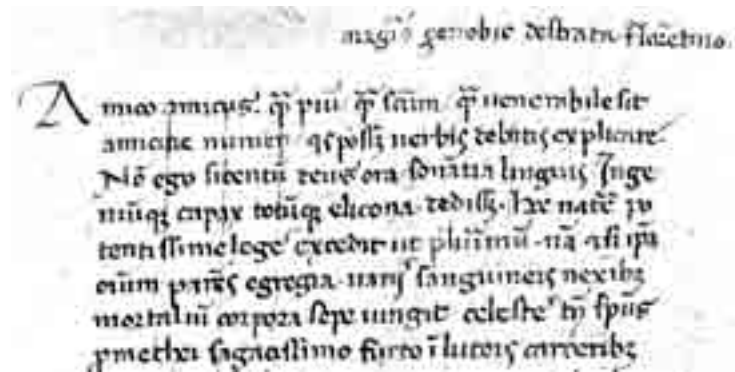 magr̃o zenobio de strata florẽtino.
Amico amicus. q̃ꝫ piũ q̃ꝫ sc̃m q̃ꝫ uenerabile sit
amicitie numen qͥs possꝫ uerbis debitis explicare
Nõ ego si centũ deus ora sonãtia linguis Inge
niũqꝫ capax totũqꝫ elicona dedissꝫ. hec natur̃e po
tentissime leges excedit ut plurimũ. nã & si ip̃a
oĩum parẽs egregia uarijs sanguineis nexibꝫ
mortaliũ corpora sepe iungit celestes tñ spũs
ꝓmethei sagacissimo furto ĩ luteis carceribꝫ